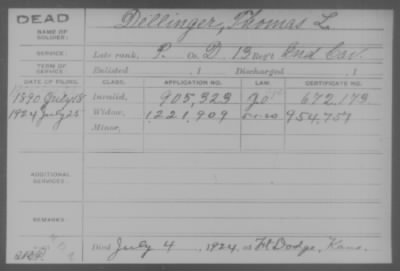 DEAD
NAME OF SOLDIER:
Dellinger, Thomas L.
SERVICE:
Late rank, P. Co. D, 13 Reg't Ind Cav.
TERM OF SERVICE:
Enlisted , 1 Discharged , 1
DATE OF FILING. CLASS. APPLICATION NO. LAW. CERTIFICATE NO.
1890 July 18 Invalid, 905,323 672,173.
1924 July 25 Widow, 1,221,909 954,757
Minor,
ADDITIONAL SERVICES:
REMARKS:
Died July 4, 1924, at Ft Dodge, Kans.